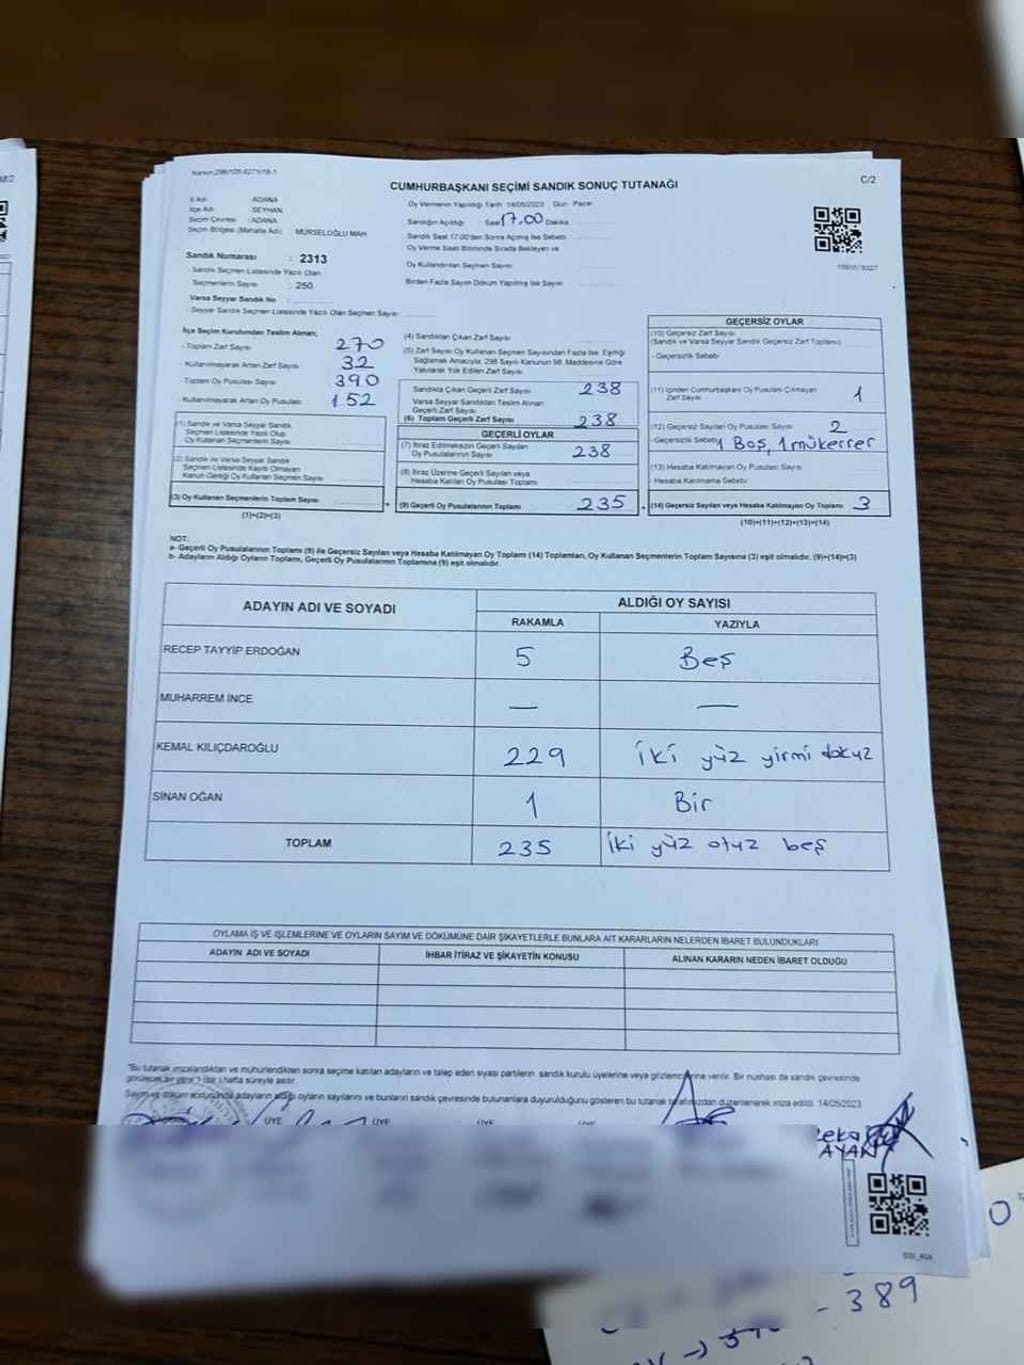 CUMHURBAŞKANI SEÇİMİ SANDIK SONUÇ TUTANAĞI
C/2
İl Adı : ADANA
İlçe Adı : SEYHAN
Seçim Çevresi : ADANA
Seçim Bölgesi (Mahalle Adı) : MÜRSELOĞLU MAH.
Oy Vermenin Yapıldığı Tarih: 14/05/2023 Gün: Pazar
Sandığın Açıldığı Saat 17.00 Dakika
Sandık Saat 17.00'den Sonra Açılmış İse Sebebi
Oy Verme Saati Bitiminde Sırada Bekleyen ve
Oy Kullandırılan Seçmen Sayısı
Birden Fazla Sayım Döküm Yapılmış İse Sayısı
Sandık Numarası : 2313
Sandık Seçmen Listesinde Yazılı Olan
Seçmenlerin Sayısı : 250
Varsa Seyyar Sandık No :
Seyyar Sandık Seçmen Listesinde Yazılı Olan Seçmen Sayısı
İlçe Seçim Kurulundan Teslim Alınan;
- Toplam Zarf Sayısı 270
- Kullanılmayarak Artan Zarf Sayısı 32
- Toplam Oy Pusulası Sayısı 390
- Kullanılmayarak Artan Oy Pusulası 152
(1) Sandık ve Varsa Seyyar Sandık
Seçmen Listesinde Yazılı Olup
Oy Kullanan Seçmenlerin Sayısı
(2) Sandık ve Varsa Seyyar Sandık
Seçmen Listesinde Kayıtlı Olmayan
Kanun Gereği Oy Kullanan Seçmen Sayısı
(3) Oy Kullanan Seçmenlerin Toplam Sayısı
(1)+(2)=(3)
(4) Sandıktan Çıkan Zarf Sayısı
(5) Zarf Sayısı Oy Kullanan Seçmen Sayısından Fazla İse, Eşitliği
Sağlamak Amacıyla; 298 Sayılı Kanunun 98. Maddesine Göre
Yakılarak Yok Edilen Zarf Sayısı
Sandıkta Çıkan Geçerli Zarf Sayısı 238
Varsa Seyyar Sandıktan Teslim Alınan
Geçerli Zarf Sayısı
(6) Toplam Geçerli Zarf Sayısı 238
GEÇERLİ OYLAR
(7) İtiraz Edilmeksizin Geçerli Sayılan
Oy Pusulalarının Sayısı 238
(8) İtiraz Üzerine Geçerli Sayılan veya
Hesaba Katılan Oy Pusulası Toplamı
(9) Geçerli Oy Pusulalarının Toplamı 235
GEÇERSİZ OYLAR
(10) Geçersiz Zarf Sayısı
(Sandık ve Varsa Seyyar Sandık Geçersiz Zarf Toplamı)
- Geçersizlik Sebebi
(11) İçinden Cumhurbaşkanı Oy Pusulası Çıkmayan
Zarf Sayısı 1
(12) Geçersiz Sayılan Oy Pusulası Sayısı 2
- Geçersizlik Sebebi 1 Boş, 1 mükerrer
(13) Hesaba Katılmayan Oy Pusulası Sayısı
- Hesaba Katılmama Sebebi
(14) Geçersiz Sayılan veya Hesaba Katılmayan Oy Toplamı 3
(10)+(11)+(12)+(13)=(14)
NOT:
a- Geçerli Oy Pusulalarının Toplamı (9) ile Geçersiz Sayılan veya Hesaba Katılmayan Oy Toplamı (14) Toplamları, Oy Kullanan Seçmenlerin Toplam Sayısına (3) eşit olmalıdır. (9)+(14)=(3)
b- Adayların Aldığı Oyların Toplamı, Geçerli Oy Pusulalarının Toplamına (9) eşit olmalıdır.
ADAYIN ADI VE SOYADI ALDIĞI OY SAYISI
RAKAMLA YAZIYLA
RECEP TAYYİP ERDOĞAN 5 Beş
MUHARREM İNCE — —
KEMAL KILIÇDAROĞLU 229 İki yüz yirmi dokuz
SİNAN OĞAN 1 Bir
TOPLAM 235 İki yüz otuz beş
OYLAMA İŞ VE İŞLEMLERİNE VE OYLARIN SAYIM VE DÖKÜMÜNE DAİR ŞİKAYETLERLE BUNLARA AİT KARARLARIN NELERDEN İBARET BULUNDUKLARI
ADAYIN ADI VE SOYADI İHBAR İTİRAZ VE ŞİKAYETİN KONUSU ALINAN KARARIN NEDEN İBARET OLDUĞU
"Bu tutanak imzalandıktan ve mühürlendikten sonra seçime katılan adayların ve talep eden siyasi partilerin sandık kurulu üyelerine veya gözlemcilerine verilir. Bir nüshası da sandık çevresinde
görülecek bir yere 1 (bir) hafta süreyle asılır.
adayların aldığı oyların sayılarını ve bunların sandık çevresinde bulunanlara duyurulduğunu gösteren bu tutanak tarafımızdan düzenlenerek imza edildi. 14/05/2023
ÜYE ÜYE ÜYE ÜYE
AYAN
- 389